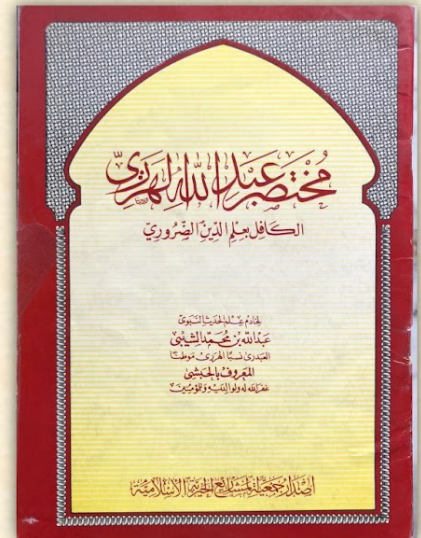 مُختصر عبد الله الهرري
الكافل بعلم الدين الضروري
لخادم علم الحديث النبوي
عبد الله بن محمد الشيبي
العبدري نسبًا الهرري موطنًا
المعروف بالحبشي
غفر الله له ولوالديه وللمؤمنين
إصدار جمعية المشاريع الخيرية الإسلامية